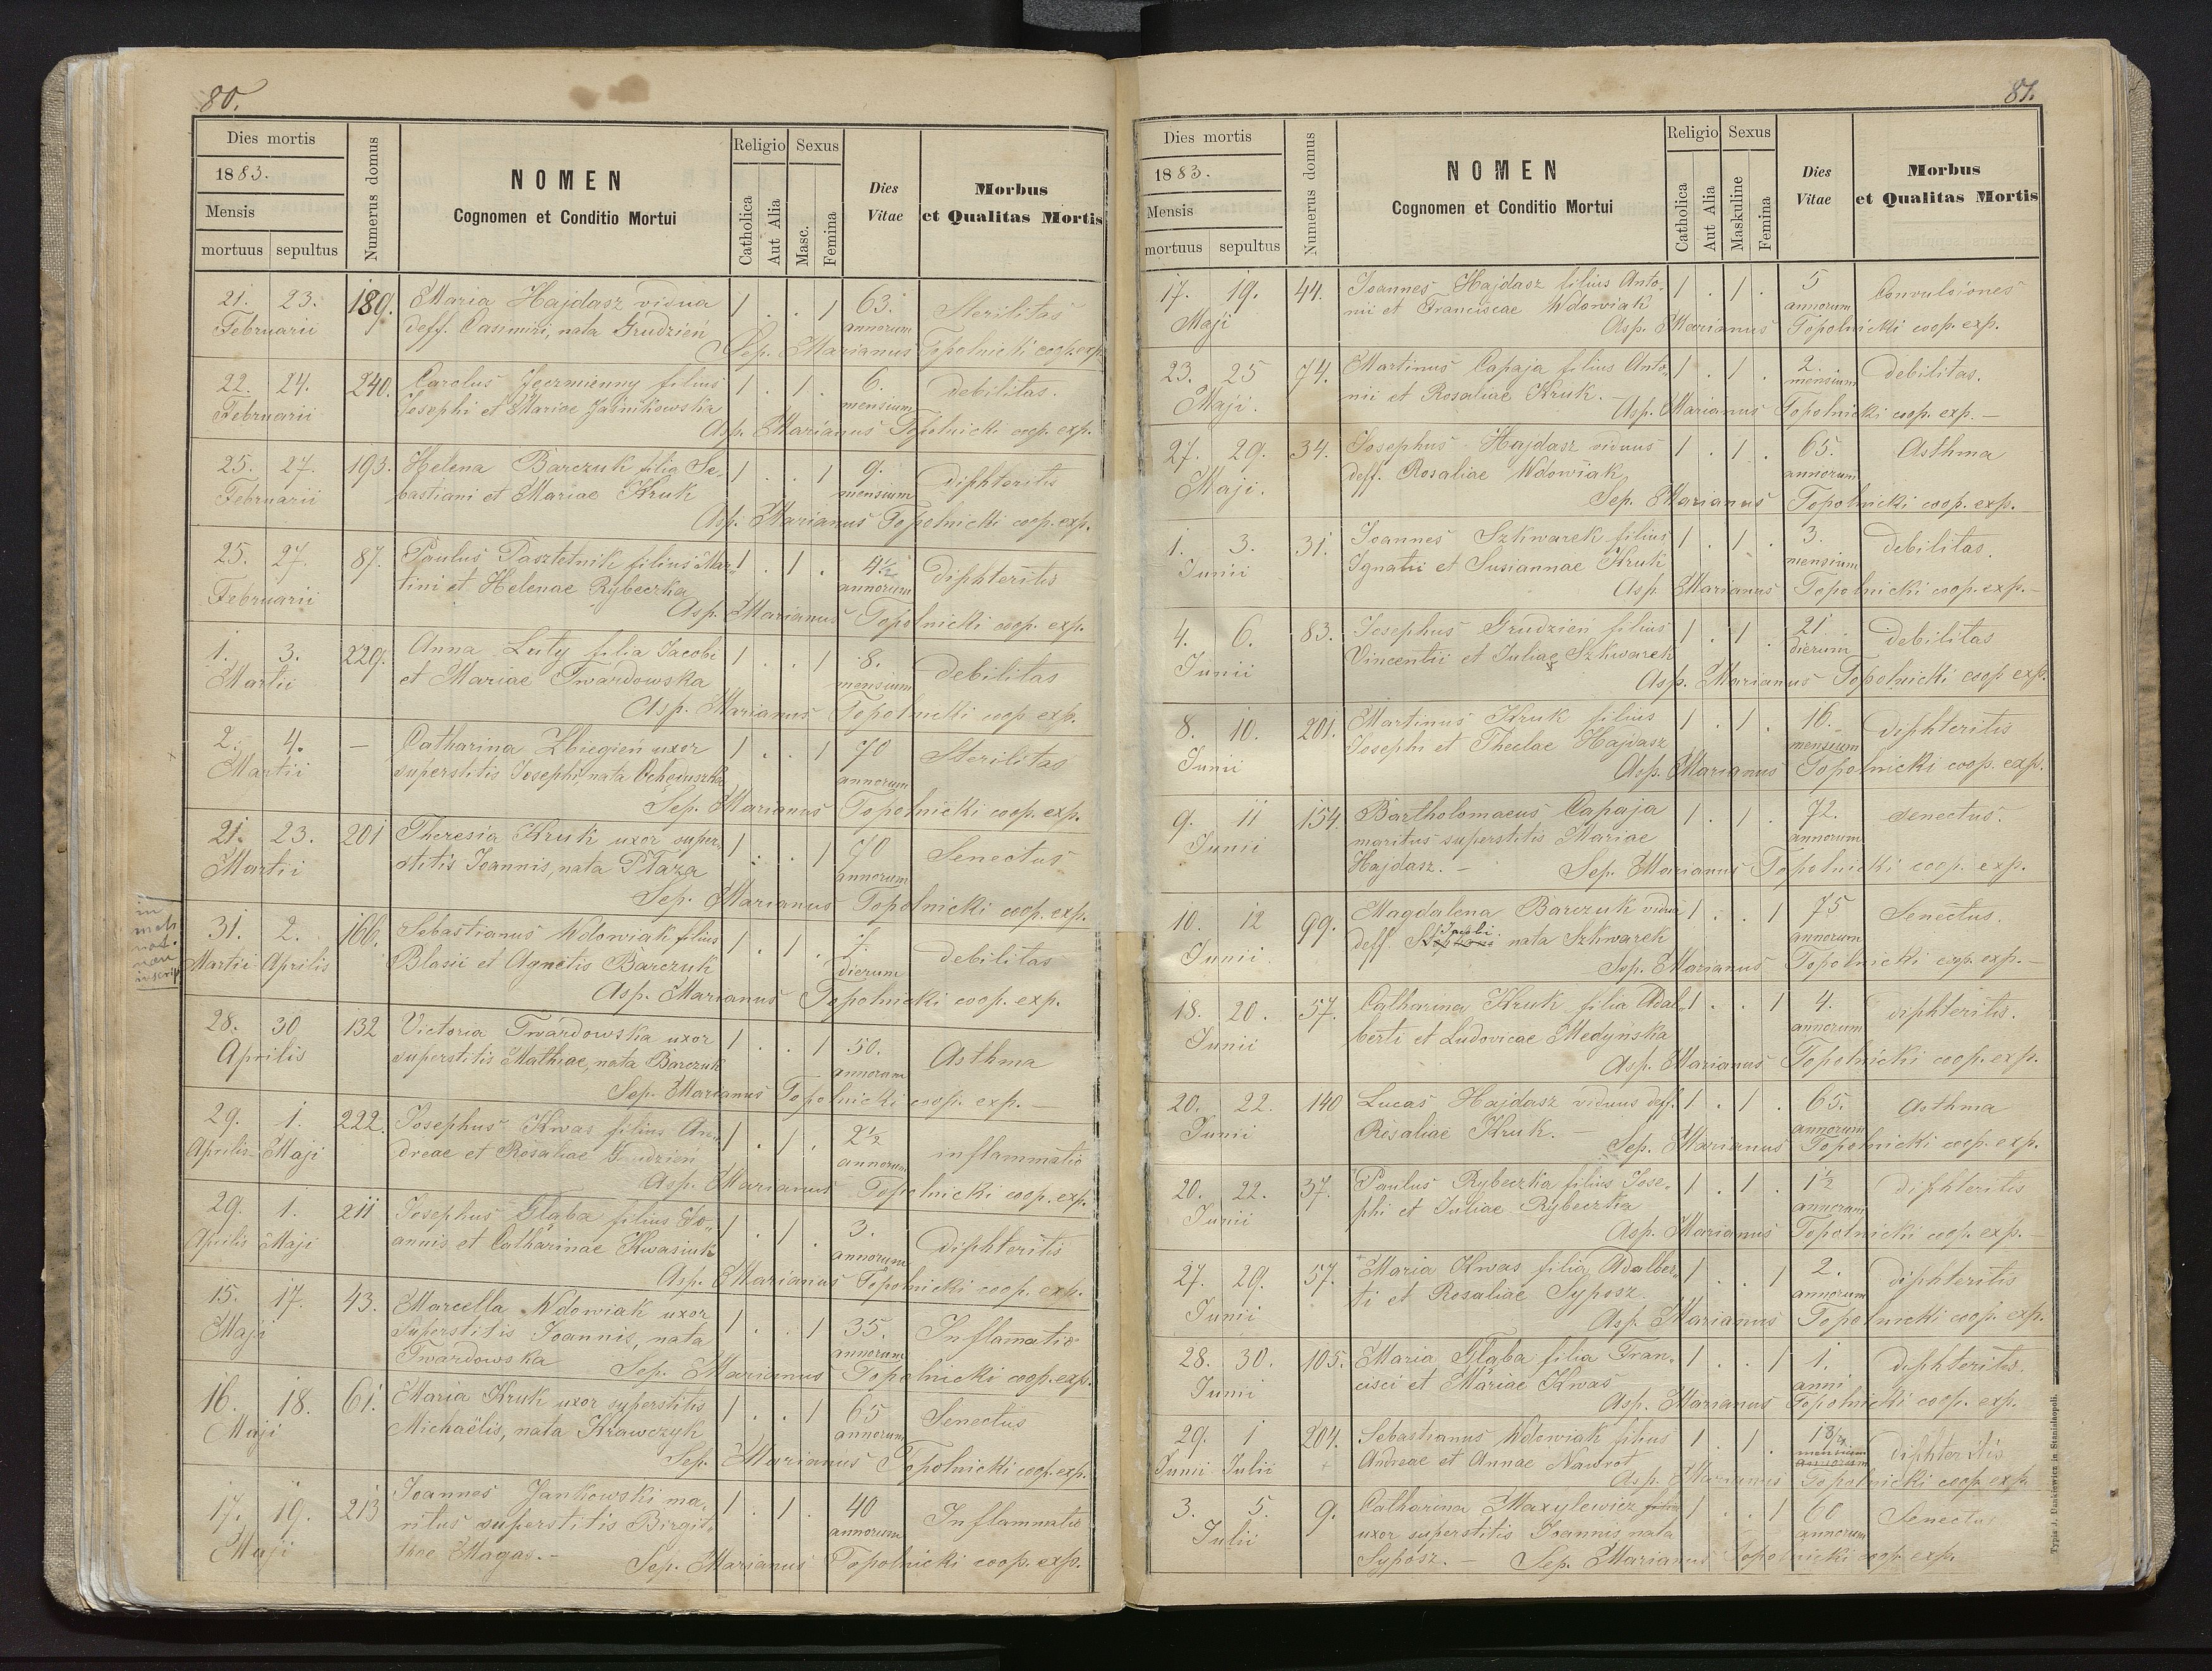 80.
Dies mortis
1883.
Mensis
mortuus sepultus
Numerus domus
NOMEN
Cognomen et Conditio Mortui
Religio
Catholica
Aut Alia
Sexus
Masc.
Femina
Dies
Vitae
Morbus
et Qualitas Mortis
21. 23. 189. Maria Hajdasz vidua 1 . . 1 63. Sterilitas
Februarii deff. Casimiri, nata Grudzień annorum
Sep. Marianus Topolnicki coop. exp.
22. 24. 240. Carolus filius 1 . 1 . 6. debilitas.
Februarii Josephi et Mariae Jasinkowska mensium
Asp. Marianus Topolnicki coop. exp.
25. 27. 193. Helena Barczuk filia Se- 1 . . 1 9. diphteritis
Februarii bastiani et Mariae Kruk mensium
Asp. Marianus Topolnicki coop. exp.
25. 27. 87. Paulus Pasztetnik filius Mar- 1 . 1 . 4½ diphteritis
Februarii tini et Helenae Rybeczka annorum
Asp. Marianus Topolnicki coop. exp.
1. 3. 229. Anna Luty filia Jacobi 1 . . 1 8. debilitas
Martii et Mariae Twardowska mensium
Asp. Marianus Topolnicki coop exp.
2. 4. — Catharina Zbiegień uxor 1 . . 1 70 Sterilitas
Martii superstitis Josephi, nata Ochęduszka annorum
Sep. Marianus Topolnicki coop. exp.
21. 23. 201 Theresia Kruk uxor super- 1 . . 1 70 Senectus
Martii stitis Joannis, nata Ptaza annorum
Sep. Marianus Topolnicki coop. exp.
in
metr.
nat.
non
inscrip
31. 2. 166. Sebastianus Wdowiak filius 1 . 1 . debilitas
Martii Aprilis Blasii et Agnetis Barczuk dierum
Asp. Marianus Topolnicki coop. exp.
28. 30 132 Victoria Twardowska uxor 1 . . 1 50. Asthma
Aprilis superstitis Mathiae, nata Barczuk annorum
Sep. Marianus Topolnicki coop. exp. —
29. 1. 222. Josephus Kwas filius An- 1 . 1 . 2½ inflammatio
Aprilis Maji dreae et Rosaliae Grudzień annorum
Asp. Marianus Topolnicki coop. exp.
29. 1. 211 Josephus Głąba filius Jo- 1 . 1 . 3. diphteritis
Aprilis Maji annis et Catharinae Kwasiuk annorum
Asp. Marianus Topolnicki coop. exp.
15. 17. 43. Marcella Wdowiak uxor 1 . . 1 35. Inflamatio
Maji superstitis Joannis, nata annorum
Twardowska Sep. Marianus Topolnicki coop. exp.
16. 18. 61. Maria Kruk uxor superstitis 1 . . 1 65 Senectus
Maji Michaëlis, nata Krawczyk annorum
Sep. Marianus Topolnicki coop. exp.
17. 19. 213 Joannes Jankowski ma- 1 . 1 . 40 Inflammatio
Maji ritus superstitis Birgit- annorum
tae Magas. — Sep. Marianus Topolnicki coop. exp.
81.
Dies mortis
1883.
Mensis
mortuus sepultus
Numerus domus
NOMEN
Cognomen et Conditio Mortui
Religio
Catholica
Aut Alia
Sexus
Maskuline
Femina
Dies
Vitae
Morbus
et Qualitas Mortis
17. 19. 44. Joannes Hajdasz filius Anto- 1 . 1 . 5 Convulsiones
Maji nii et Franciscae Wdowiak annorum
Asp. Marianus Topolnicki coop. exp.
23. 25 74. Martinus Capaja filius Anto- 1 . 1 . 2. debilitas.
Maji. nii et Rosaliae Kruk. — mensium
Asp. Marianus Topolnicki coop. exp. —
27. 29. 34. Josephus Hajdasz viduus 1 . 1 . 65. Asthma
Maji. deff. Rosaliae Wdowiak annorum
Sep. Marianus Topolnicki coop. exp.
1. 3. 31. Joannes Szkwarek filius 1 . 1 . 3. debilitas.
Junii Ignatii et Susiannae Kruk mensium
Asp. Marianus Topolnicki coop. exp. —
4. 6. 83. Josephus Grudzień filius 1 . 1 . 21 debilitas
Junii Vincentii et Juliae Szkwarek dierum
Asp. Marianus Topolnicki coop exp.
8. 10. 201. Martinus Kruk filius 1 . 1 . 16. diphteritis
Junii Josephi et Theclae Hajdasz mensium
Asp. Marianus Topolnicki coop. exp.
9. 11 154. Bartholomaeus Capaja 1 . 1 . 72. senectus.
Junii maritus superstitis Mariae annorum
Hajdasz. — Sep. Marianus Topolnicki coop. exp.
10. 12 99. Magdalena Barczuk vidua 1 . . 1 75 Senectus.
Junii. deff. Jacobi nata Szkwarek annorum
Sep. Marianus Topolnicki coop. exp. —
18. 20. 57. Catharina Kruk filia Adal- 1 . . 1 4. diphteritis.
Junii berti et Ludovicae Medyńska annorum
Asp. Marianus Topolnicki coop. exp.
20. 22. 140 Lucas Hajdasz viduus deff. 1 . 1 . 65. Asthma
Junii Rosaliae Kruk. — annorum
Sep. Marianus Topolnicki coop. exp.
20. 22. 37. Paulus Rybeczka filius Jose- 1 . 1 . 1½ diphteritis
Junii phi et Juliae Rybeczka annorum
Asp. Marianus Topolnicki coop. exp.
27. 29. 57. Maria Kwas filia Adalber- 1 . . 1 2. diphteritis
Junii ti et Rosaliae Syposz. annorum
Asp. Marianus Topolnicki coop. exp.
28. 30. 105. Maria Głąba filia Fran- 1 . . 1 1. diphteritis.
Junii cisci et Mariae Kwas anni
Asp. Marianus Topolnicki coop. exp.
29. 1 204. Sebastianus Wdowiak filius 1 . 1 . 18 diphteritis
Junii Julii Andreae et Annae Nawrot mensium annorum
Asp. Marianus Topolnicki coop. exp.
3. 5. 9. Catharina Maxylewicz filia 1 . . 1 60 Senectus
Julii uxor superstitis Joannis nata annorum
Syposz. — Sep. Marianus Topolnicki coop. exp.
Typis J. Dankiewicz in Stanislaopoli.